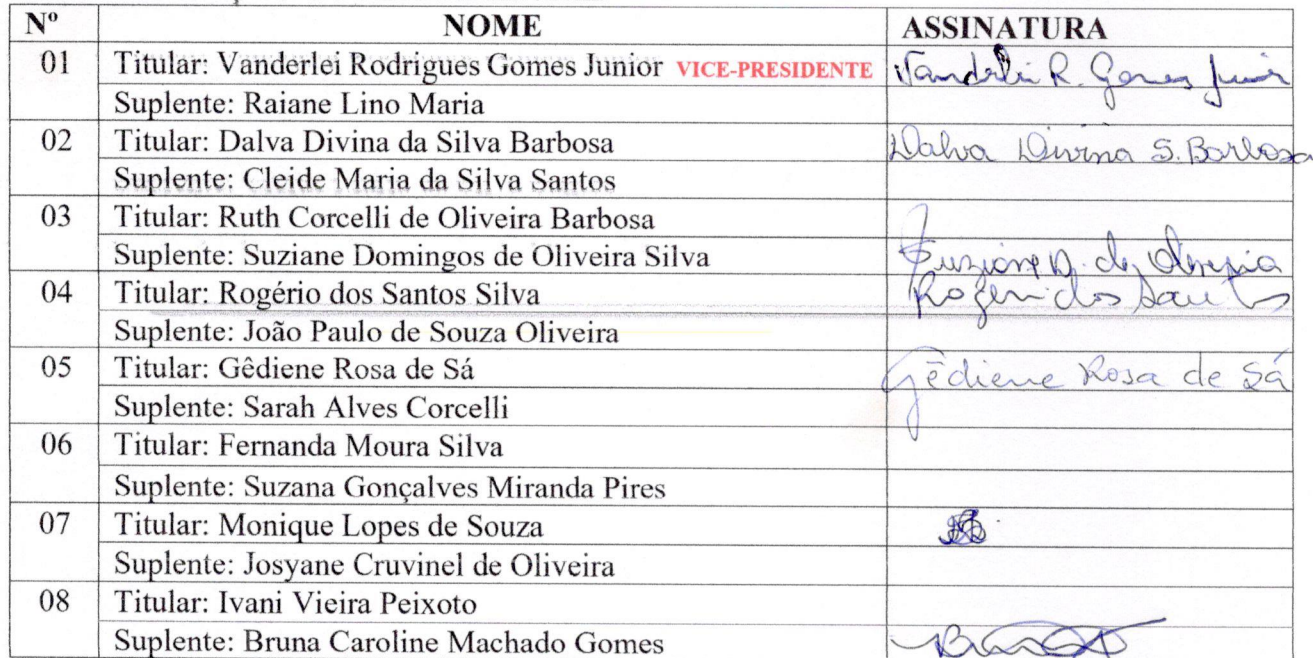 Nº NOME ASSINATURA
01 Titular: Vanderlei Rodrigues Gomes Junior VICE-PRESIDENTE Vanderlei R. Gomes Junior
Suplente: Raiane Lino Maria
02 Titular: Dalva Divina da Silva Barbosa Dalva Divina S. Barbosa
Suplente: Cleide Maria da Silva Santos
03 Titular: Ruth Corcelli de Oliveira Barbosa
Suplente: Suziane Domingos de Oliveira Silva Suziane D. de Oliveira
04 Titular: Rogério dos Santos Silva Rogerio dos Santos
Suplente: João Paulo de Souza Oliveira
05 Titular: Gêdiene Rosa de Sá Gêdiene Rosa de Sá
Suplente: Sarah Alves Corcelli
06 Titular: Fernanda Moura Silva
Suplente: Suzana Gonçalves Miranda Pires
07 Titular: Monique Lopes de Souza
Suplente: Josyane Cruvinel de Oliveira
08 Titular: Ivani Vieira Peixoto
Suplente: Bruna Caroline Machado Gomes